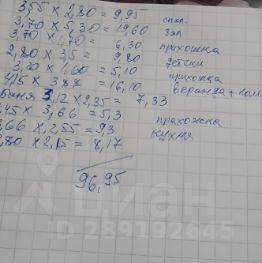 3,55 × 2,80 = 9,95 спал.
3,70 × 5,30 = 19,60 зал
3,70 × 1,70 = 6,30 прохожка
2,80 × 3,5 = 9,80 детски
3,20 × 1,60 = 5,10 прихожка
4,15 × 3,88 = 16,10 веранда + ком
баня 3,12 × 2,35 = 7,33
,45 × 3,66 = 5,3 прахожена
3,66 × 2,55 = 9,3 кухня
,80 × 2,15 = 8,17
96,95
циан
ID 289192645